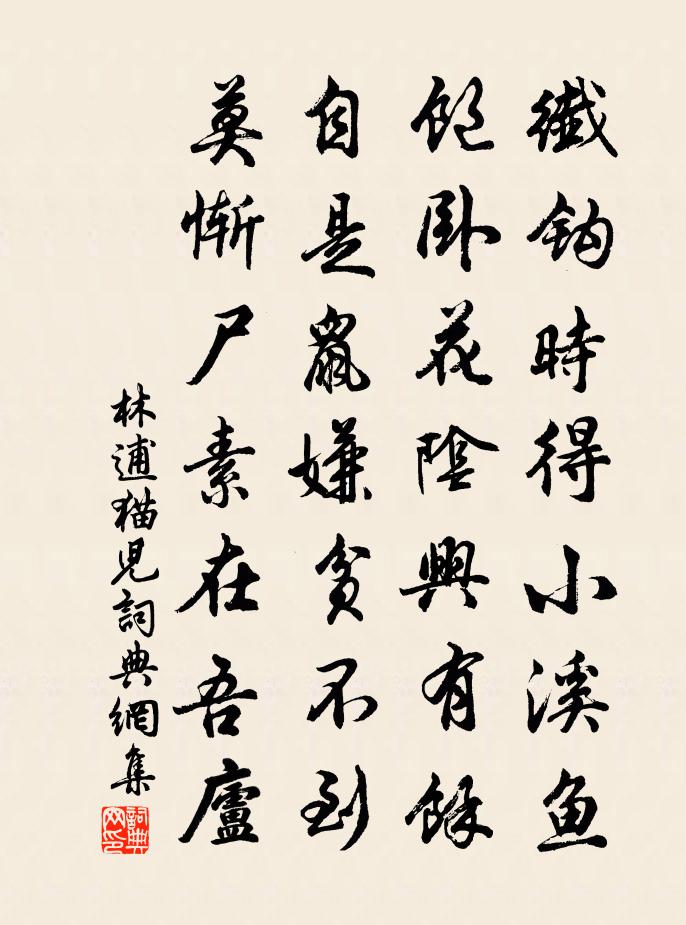 纖鈎時得小溪魚
飽卧花陰興有餘
自是鼠嫌貧不到
莫慚尸素在吾廬
林逋猫児詞典網集
詞典网印